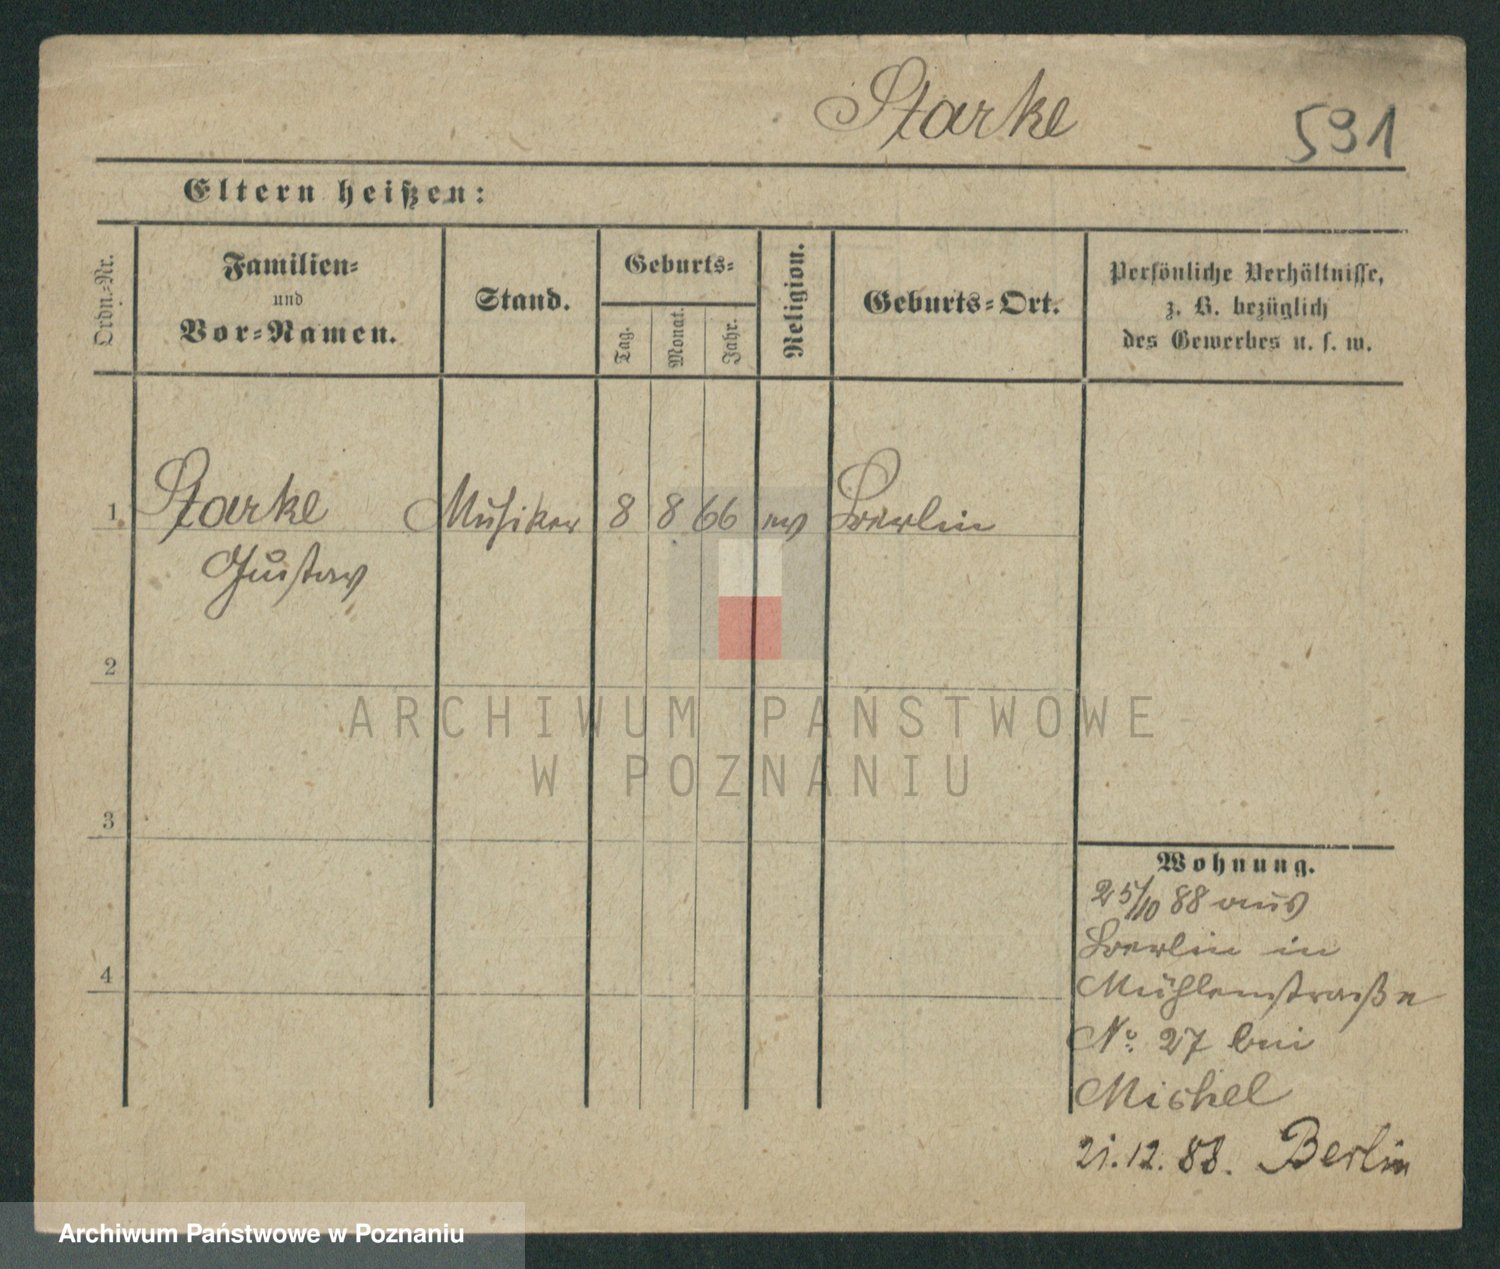 Starke
591
Eltern heißen:
Ordn.-Nr.
Familien-
und
Vor-Namen.
Stand.
Geburts-
Tag.
Monat.
Jahr.
Religion.
Geburts-Ort.
Persönliche Verhältnisse,
z. B. bezüglich
des Gewerbes u. s. w.
1 Starke Musiker 8 8 66 ev Berlin
Gustav
2
3
4
ARCHIWUM PAŃSTWOWE
W POZNANIU
Wohnung.
25/10 88 aus
Berlin in
Mühlenstraße
No. 27 bei
Michel
21.12.88. Berlin
Archiwum Państwowe w Poznaniu